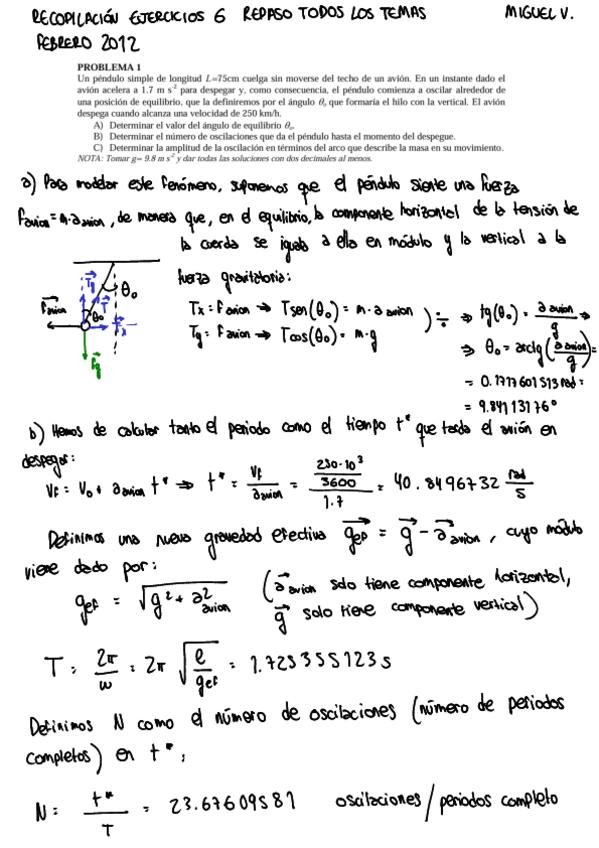 RECOPILACIÓN EJERCICIOS 6 REPASO TODOS LOS TEMAS MIGUEL V.
FEBRERO 2012
PROBLEMA 1
Un péndulo simple de longitud L=75cm cuelga sin moverse del techo de un avión. En un instante dado el
avión acelera a 1.7 m s⁻² para despegar y, como consecuencia, el péndulo comienza a oscilar alrededor de
una posición de equilibrio, que la definiremos por el ángulo θₒ que formaría el hilo con la vertical. El avión
despega cuando alcanza una velocidad de 250 km/h.
A) Determinar el valor del ángulo de equilibrio θₒ.
B) Determinar el número de oscilaciones que da el péndulo hasta el momento del despegue.
C) Describir la amplitud de la oscilación en términos del arco que describe la masa en su movimiento.
NOTA: Tomar g= 9.8 m s⁻² y dar todas las soluciones con dos decimales al menos.
a) Para modelar este fenómeno, suponemos que el péndulo siente una fuerza
Favion = m·a avion, de manera que, en el equilibrio, la componente horizontal de la tensión de
la cuerda se iguala a ella en módulo y la vertical a la
fuerza gravitatoria:
Tx = F avion → T sen(θ₀) = m·a avion
Ty = F avion → T cos(θ₀) = m·g
) ÷ ⇒ tg(θ₀) = a avion / g ⇒
⇒ θ₀ = arctg(a avion / g) =
= 0.1717601513 rad =
= 9.84113176°
F avion Ty T θ₀ θ₀ Tx
Fg
b) Hemos de calcular tanto el periodo como el tiempo t* que tarda el avión en
despegar:
Vf = V₀ + a avion t* ⇒ t* = Vf / a avion = (250·10³ / 3600) / 1.7 = 40.8496732 rad/s
Definimos una nueva gravedad efectiva gef = g - a avion, cuyo módulo
viene dado por:
gef = √(g² + a² avion) (a avion solo tiene componente horizontal,
g solo tiene componente vertical)
T = 2π / ω = 2π √(l / gef) = 1.725355123 s
Definimos N como el número de oscilaciones (número de periodos
completos) en t*,
N = t* / T = 23.67609581 oscilaciones / periodos completo